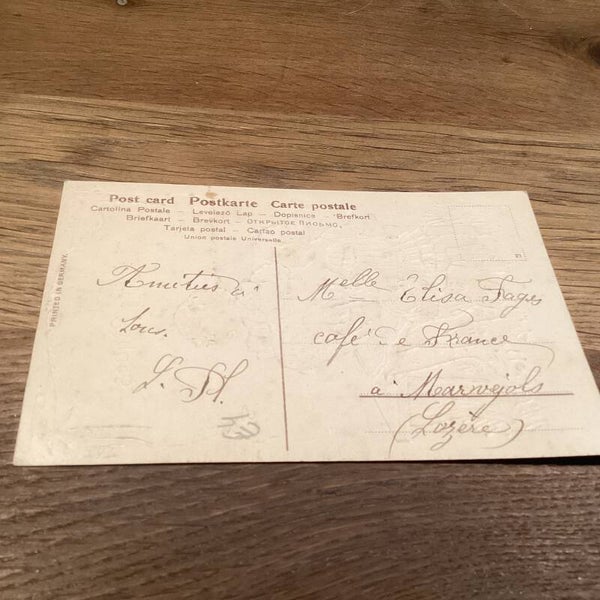 Post card Postkarte Carte postale
Cartolina Postale – Levelező Lap – Dopisnice – Brefkort
Briefkaart – Brevkort – ОТКРЫТОЕ ПИСЬМО,
Tarjeta postal – Cartão postal
Union postale Universelle
PRINTED IN GERMANY.
Amitiés à
tous.
Melle Élisa Fages
café de France
à Marvejols
(Lozère)